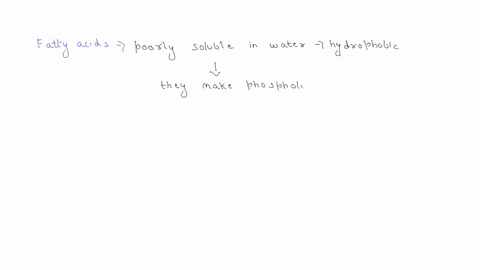 Fatty acids → poorly soluble in water → hydrophobic
↓
they make phospholi